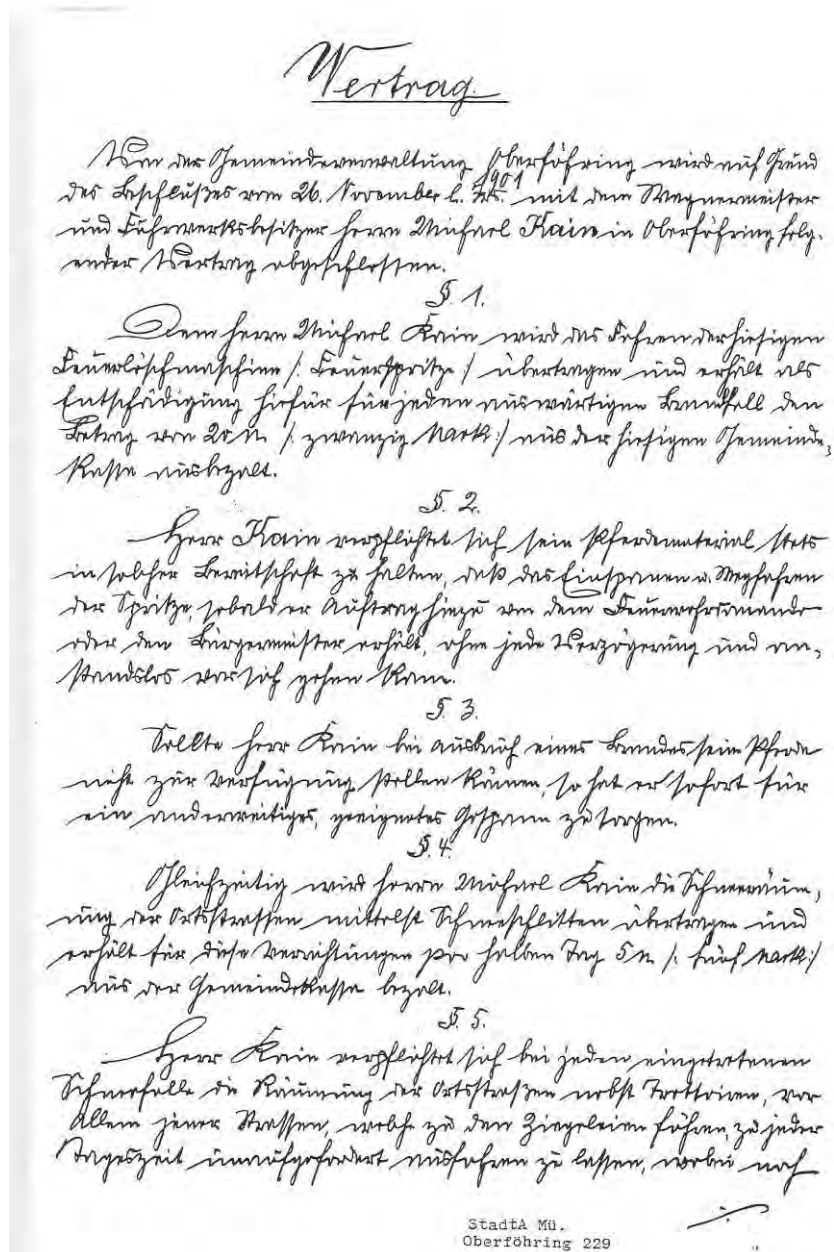 Vertrag.
Von der Gemeindeverwaltung Oberföhring wird auf Grund
des Beschlußes vom 26. November l. Jrs. 1901 mit dem Wagnermeister
und Fuhrwerksbesitzer Herrn Michael Kain in Oberföhring folg-
ender Vertrag abgeschlossen.
§. 1.
Dem Herrn Michael Kain wird das Fahren der hiesigen
Feuerlöschmaschine /: Feuerspritze :/ übertragen und erhält als
Entschädigung hiefür für jeden auswärtigen Brandfall den
Betrag von 20 M. /: zwanzig Mark :/ aus der hiesigen Gemeinde-
Kasse ausbezalt.
§. 2.
Herr Kain verpflichtet sich sein Pferdematerial stets
in solcher Bereitschaft zu halten, daß das Einspanen u. Wegfahren
der Spritze, sobald er Auftrag hiezu von dem Feuerwehrcomando
oder den Bürgermeister erhält, ohne jede Verzögerung und an-
standslos vor sich gehen kann.
§. 3.
Sollte Herr Kain bei Ausbruch eines Brandes seine Pferde
nicht zur Verfügung stellen könen, so hat er sofort für
ein anderweitiges, geeignetes Gespann zu sorgen.
§. 4.
Gleichzeitig wird Herrn Michael Kain die Schneeräum-
ung der Ortsstrassen mittelst Schneeschlitten übertragen und
erhält für diese Verrichtungen per halben Tag 5 M. /: fünf Mark :/
aus der Gemeindekasse bezalt.
§. 5.
Herr Kain verpflichtet sich bei jeden eingetretenen
Schneefalle die Räumung der Ortsstraßen nebst Trottoiren, vor
Allem jener Strassen, welche zu den Ziegeleien föhren, zu jeder
Tageszeit unaufgefordert ausfahren zu lassen, wobei noch
./.
StadtA Mü.
Oberföhring 229